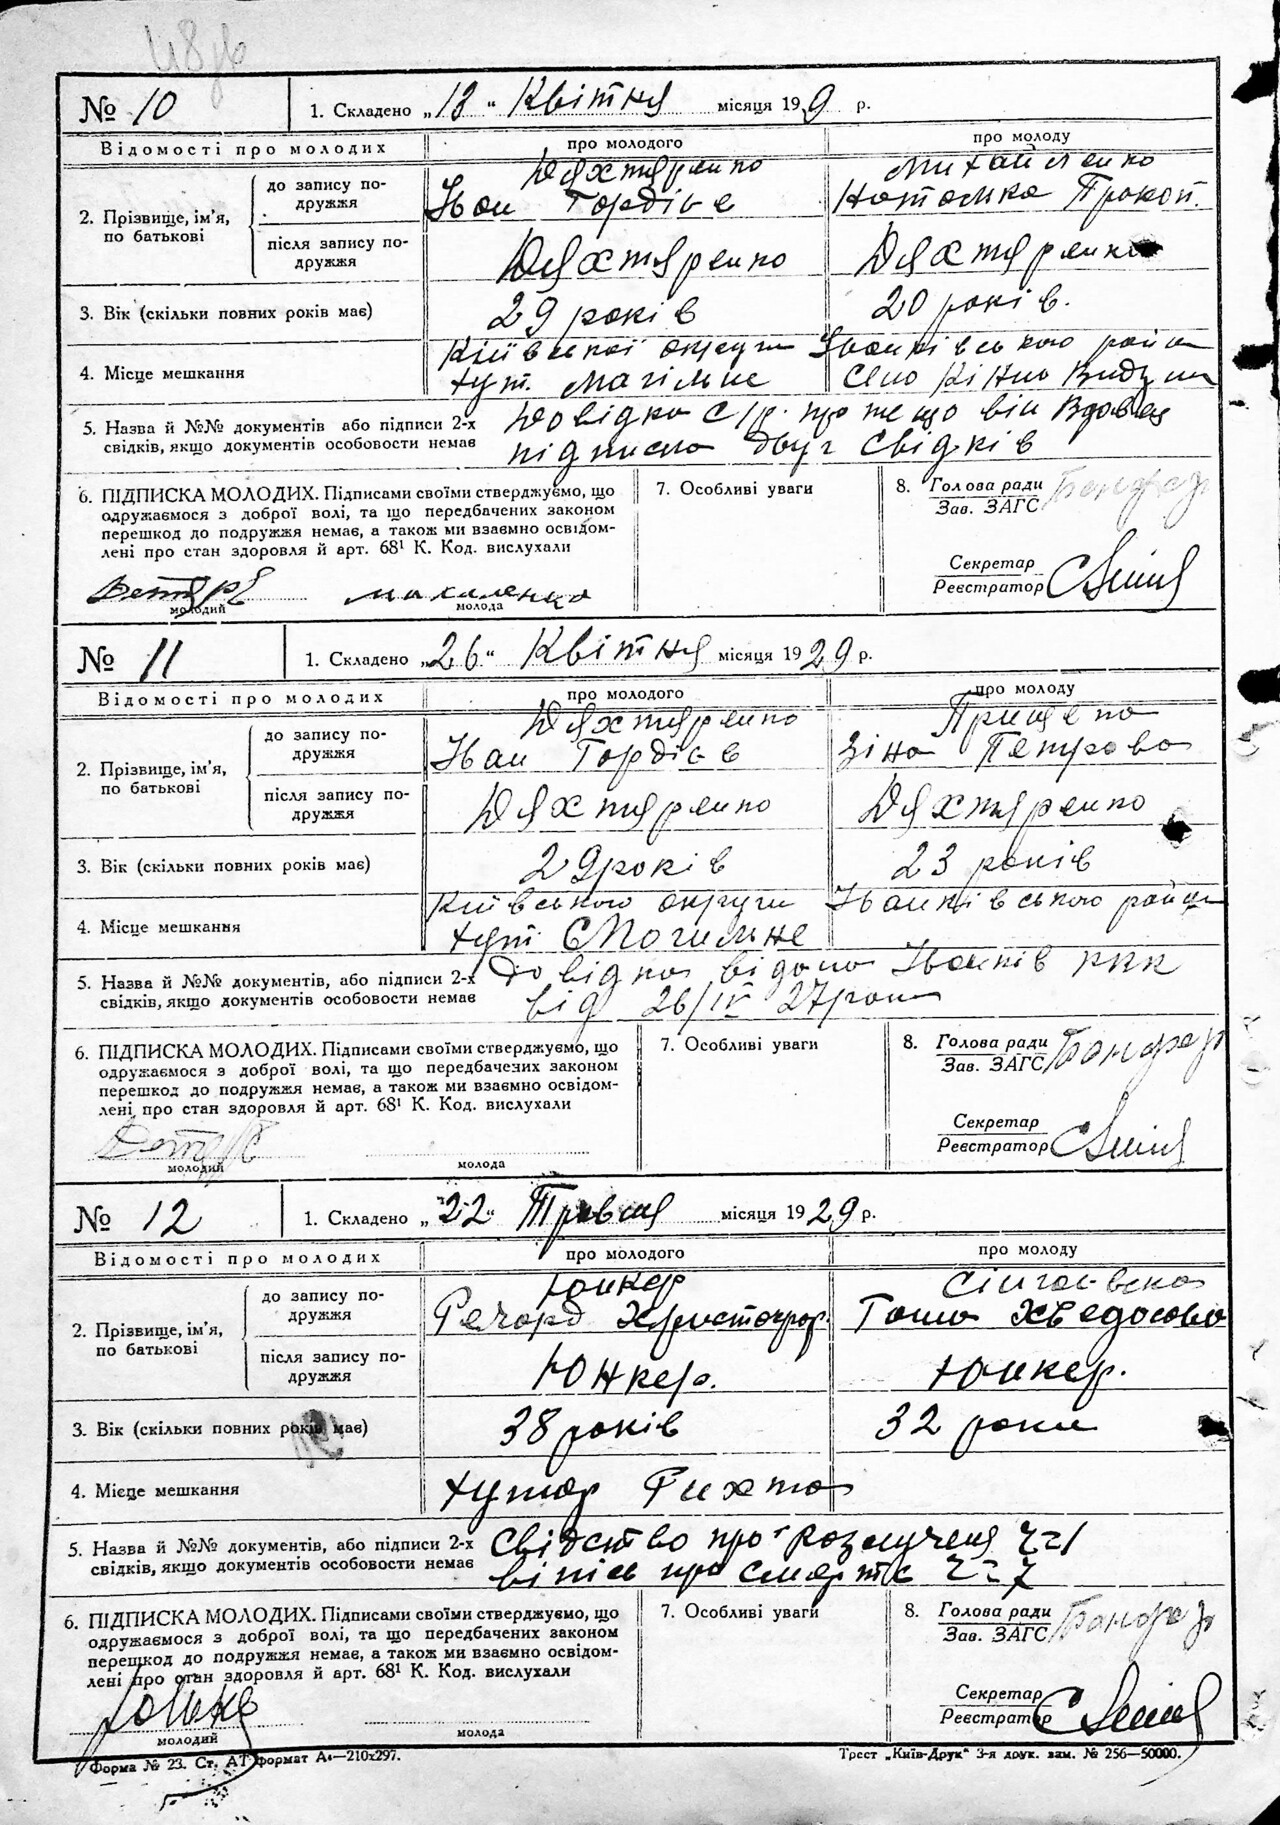 № 10
1. Складено „13“ Квітня місяця 19 9 р.
Відомості про молодих
про молодого
про молоду
2. Прізвище, ім'я, по батькові
до запису подружжя
Дяхтяренко
Іван Гордіев
Михайленко
Наталка Прокоп.
після запису подружжя
Дяхтяренко
Дяхтяренко
3. Вік (скільки повних років має)
29 років
20 років.
4. Місце мешкання
Київської округи Іванківського район
хут. Магільне
5. Назва й №№ документів або підписи 2-х
свідків, якщо документів особовости немає
Довідка с/р. про те що він Вдовець
підписи двух Свідків
6. ПІДПИСКА МОЛОДИХ. Підписами своїми стверджуємо, що
одружаємося з доброї волі, та що передбачених законом
перешкод до подружжя немає, а також ми взаємно освідом-
лені про стан здоровля й арт. 68¹ К. Код. вислухали
михаленко
молодий
молода
7. Особливі уваги
8. Голова ради
Зав. ЗАГС
Секретар
Реєстратор
№ 11
1. Складено „26“ Квітня місяця 1929 р.
Відомості про молодих
про молодого
про молоду
2. Прізвище, ім'я,
по батькові
до запису по-
дружжя
Дяхтяренко
Іван Гордіев
Прищепа
Зіна Петрова
після запису по-
дружжя
Дяхтяренко
Дяхтяренко
3. Вік (скільки повних років має)
29 років
23 років
4. Місце мешкання
Київського округи Іванківського район
хут Могильне
5. Назва й №№ документів, або підписи 2-х
свідків, якщо документів особовости немає
Довідка відана Іванків
від 26/IV 27 рок
6. ПІДПИСКА МОЛОДИХ. Підписами своїми стверджуємо, що
одружаємося з доброї волі, та що передбачених законом
перешкод до подружжя немає, а також ми взаємно освідом-
лені про стан здоровля й арт. 68¹ К. Код. вислухали
молодий
молода
7. Особливі уваги
8. Голова ради
Зав. ЗАГС
Секретар
Реєстратор
№ 12
1. Складено „22“ Травня місяця 1929 р.
Відомості про молодих
про молодого
про молоду
2. Прізвище, ім'я,
по батькові
до запису по-
дружжя
Юнкер
Речард Христофор.
Ганна Хведосова
після запису по-
дружжя
Юнкер.
Юнкер.
3. Вік (скільки повних років має)
38 років
32 роки
4. Місце мешкання
хутор Рихта
5. Назва й №№ документів, або підписи 2-х
свідків, якщо документів особовости немає
Свідство про розлученя
віпись про смерть
6. ПІДПИСКА МОЛОДИХ. Підписами своїми стверджуємо, що
одружаємося з доброї волі, та що передбачених законом
перешкод до подружжя немає, а також ми взаємно освідом-
лені про стан здоровля й арт. 68¹ К. Код. вислухали
молодий
молода
7. Особливі уваги
8. Голова ради
Зав. ЗАГС
Секретар
Реєстратор
Форма № 23. Ст. АТ формат А4—210х297.
Трест „Київ-Друк“ 3-я друк. зам. № 256—50000.